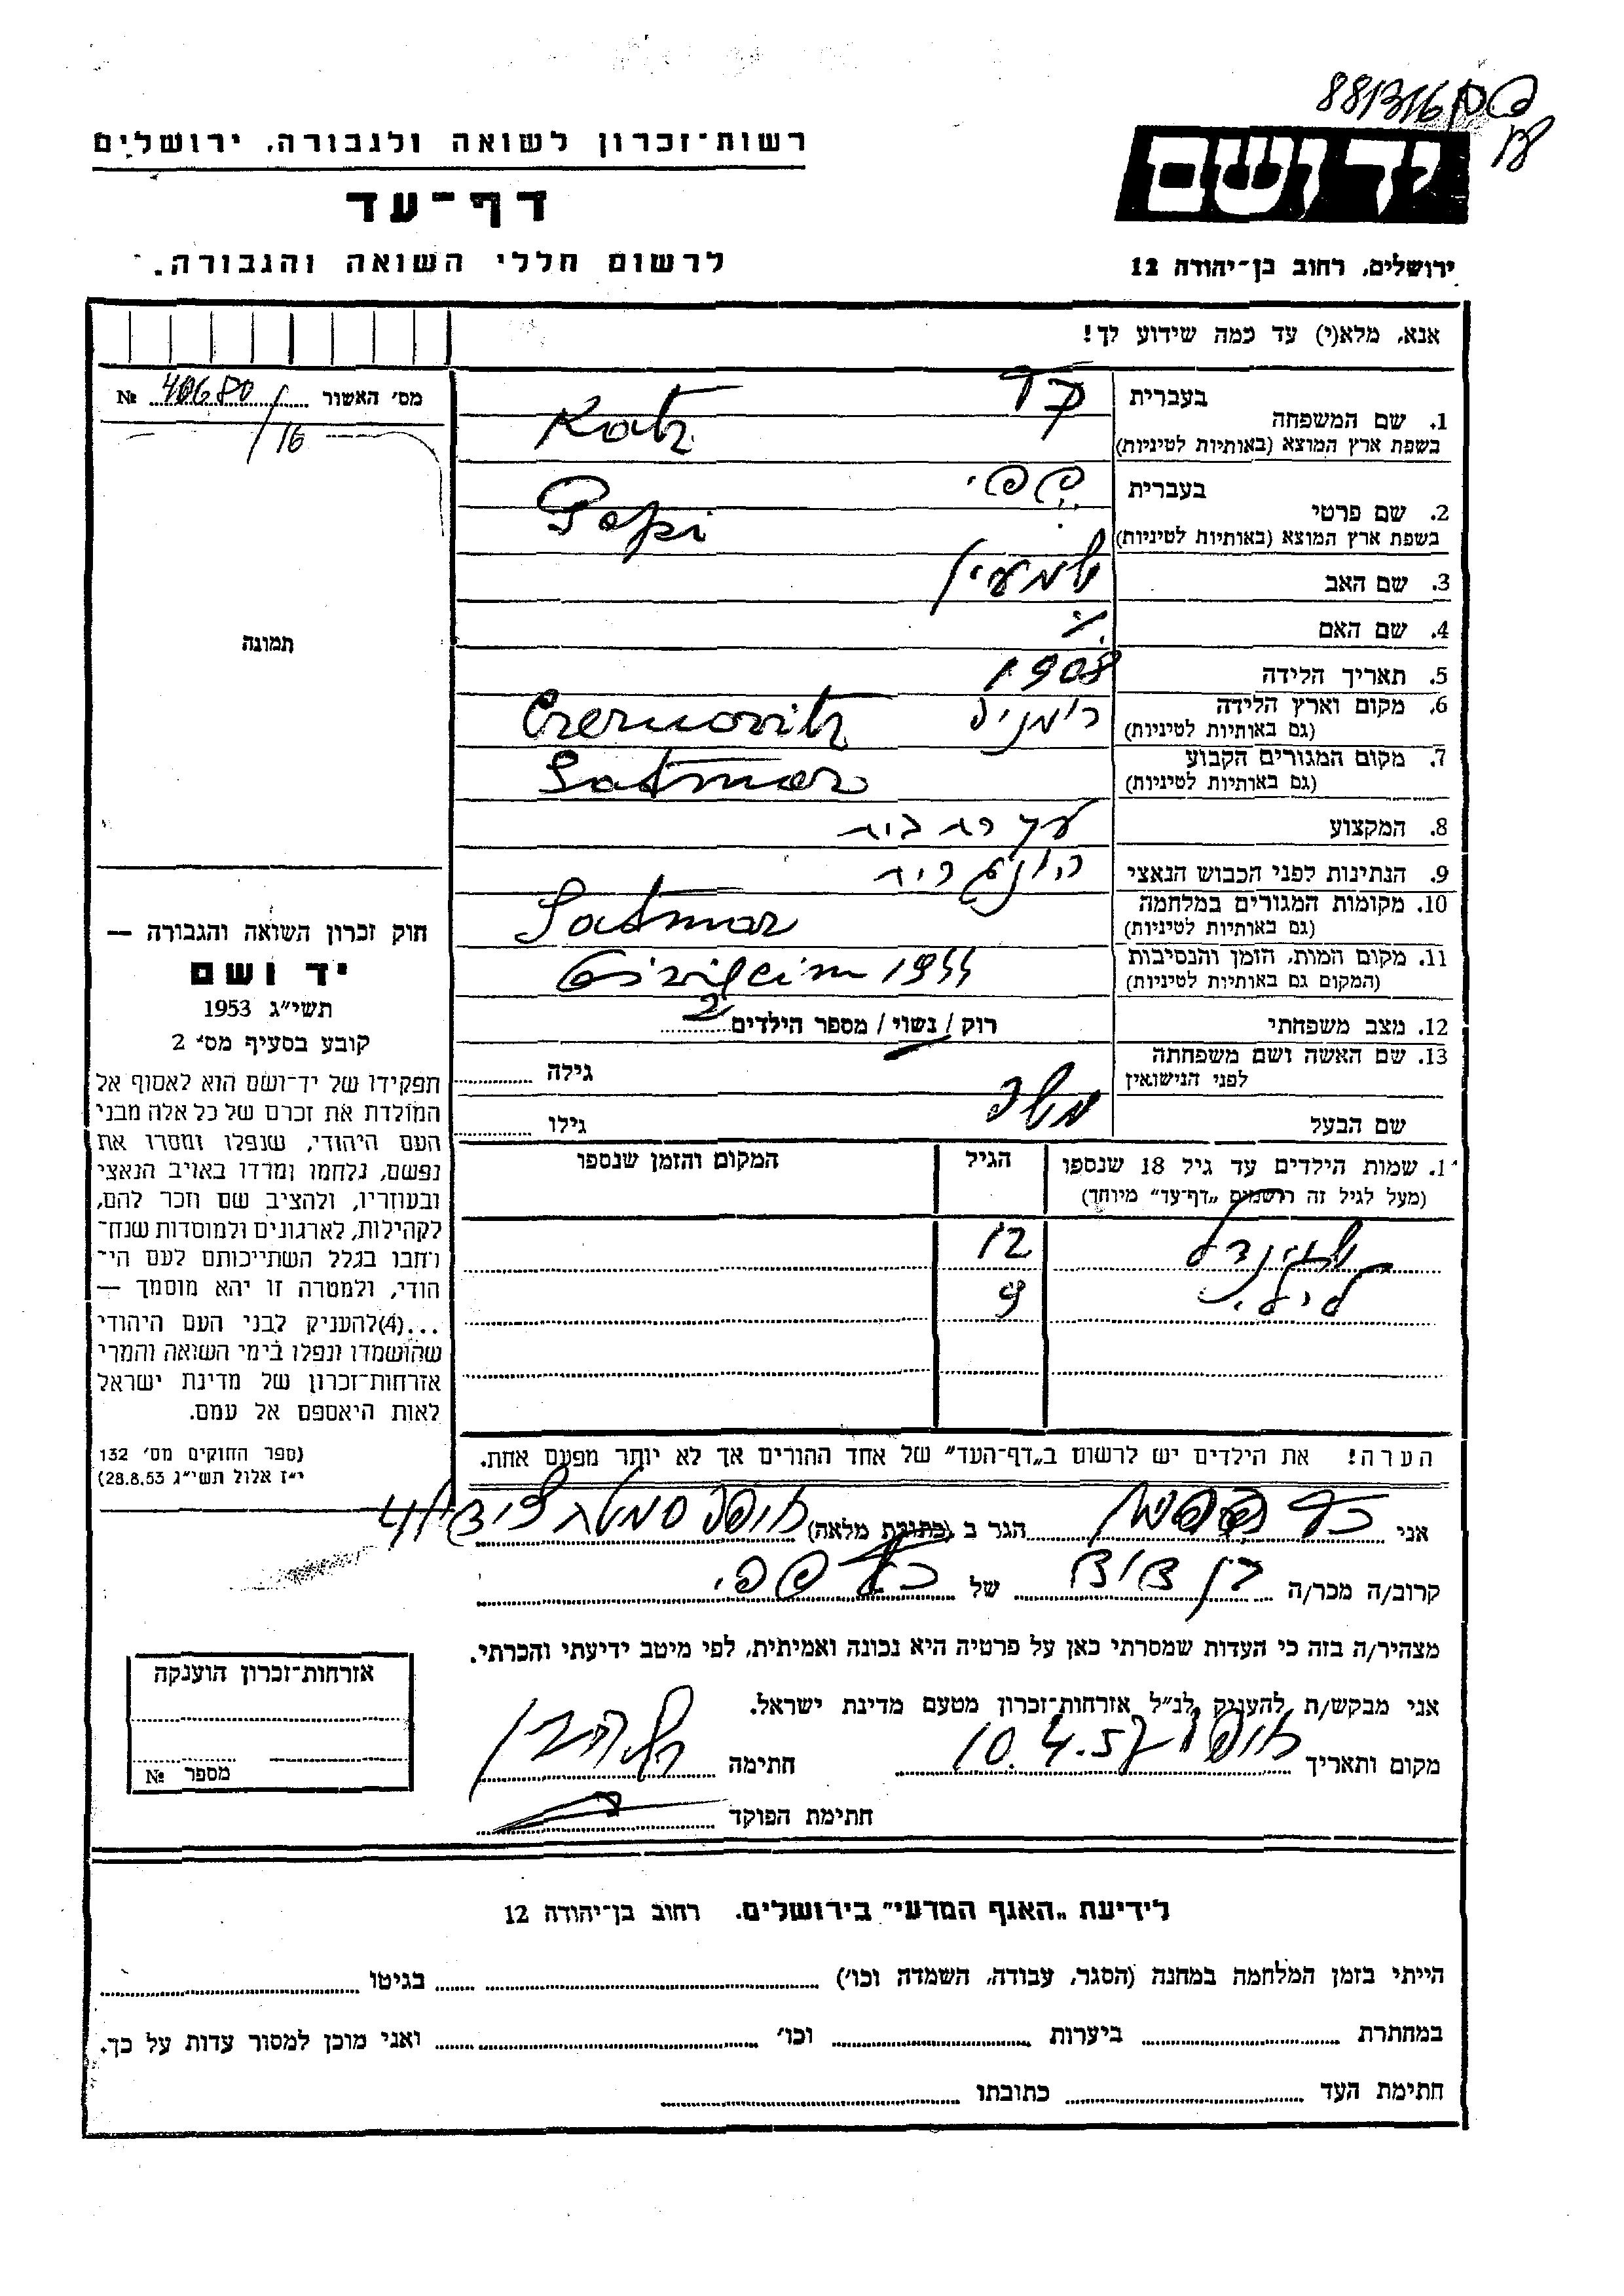 רשות-זכרון לשואה ולגבורה, ירושלים
דף-עד
לרשום חללי השואה והגבורה.
יד ושם
ירושלים, רחוב בן-יהודה 12
אנא, מלא(י) עד כמה שידוע לך!
מס' האשור № 40680
/16
תמונה
1. שם המשפחה
בעברית כץ
בשפת ארץ המוצא (באותיות לטיניות) Katz
2. שם פרטי
בעברית פפי
בשפת ארץ המוצא (באותיות לטיניות) Pepi
3. שם האב שמעון
4. שם האם
5. תאריך הלידה 1908
6. מקום וארץ הלידה רומניה Czernovitz
(גם באותיות לטיניות)
7. מקום המגורים הקבוע Satmar
(גם באותיות לטיניות)
8. המקצוע עקרת בית
9. הנתינות לפני הכבוש הנאצי הונגרית
10. מקומות המגורים במלחמה Satmar
(גם באותיות לטיניות)
11. מקום המות, הזמן והנסיבות 1944
(המקום גם באותיות לטיניות)
12. מצב משפחתי רוק / נשוי / מספר הילדים 2
13. שם האשה ושם משפחתה
לפני הנישואין גילה
שם הבעל משה גילו
1. שמות הילדים עד גיל 18 שנספו הגיל המקום והזמן שנספו
(מעל לגיל זה רושמים "דף-עד" מיוחד)
12
לילי 9
הערה! את הילדים יש לרשום ב"דף-העד" של אחד ההורים אך לא יותר מפעם אחת.
חוק זכרון השואה והגבורה —
יד ושם
תשי"ג 1953
קובע בסעיף מס' 2
תפקידו של יד-ושם הוא לאסוף אל
המולדת את זכרם של כל אלה מבני
העם היהודי, שנפלו ומסרו את
נפשם, נלחמו ומרדו באויב הנאצי
ובעוזריו, ולהציב שם וזכר להם,
לקהילות, לארגונים ולמוסדות שנח-
רבו בגלל השתייכותם לעם הי-
הודי, ולמטרה זו יהא מוסמך —
...(4) להעניק לבני העם היהודי
שהושמדו ונפלו בימי השואה והמרי
אזרחות-זכרון של מדינת ישראל
לאות היאספם אל עמם.
(ספר החוקים מס' 132
י"ז אלול תשי"ג 28.8.53)
אני כץ הגר ב (כתובת מלאה) חיפה
קרוב/ה מכר/ה בן דוד של כץ פפי
מצהיר/ה בזה כי העדות שמסרתי כאן על פרטיה היא נכונה ואמיתית, לפי מיטב ידיעתי והכרתי.
אני מבקש/ת להעניק לנ"ל אזרחות-זכרון מטעם מדינת ישראל.
מקום ותאריך חיפה 10.4.57 חתימה
חתימת הפוקד
אזרחות-זכרון הוענקה
מספר №
לידיעת "האגף המדעי" בירושלים. רחוב בן-יהודה 12
הייתי בזמן המלחמה במחנה (הסגר, עבודה, השמדה וכו') בגיטו
במחתרת ביערות וכו' ואני מוכן למסור עדות על כך.
חתימת העד כתובתו